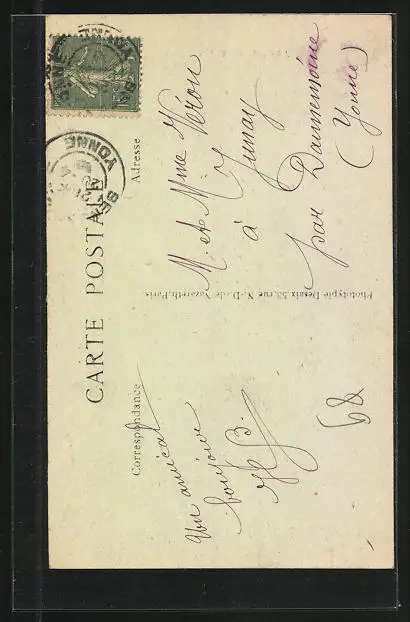 CARTE POSTALE
Correspondance
Adresse
Un amical
bonjour
B.
M. et Mme Véron
à Junay
par Dannemoine
(Yonne)
Phototypie Desaix, 53, rue N.-D. de Nazareth, Paris.
YONNE
68